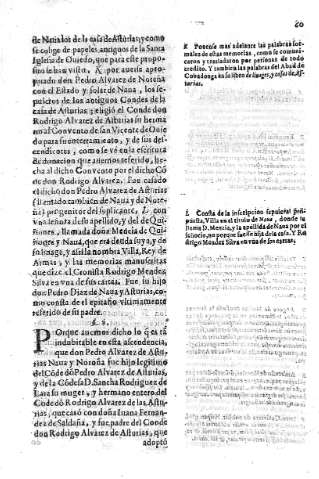 60
de Nava los de la casa de Asturias, y como
se colige de papeles antiguos de la Santa
Iglesia de Oviedo, que para este propo-
sito se han visto. K por averse apro-
priado don Pedro Alvarez de Noroña
con el Estado y solar de Nava, los se-
pulcros de los antiguos Condes de la
casa de Asturias; y eligiò el Conde don
Rodrigo Alvarez de Asturias su herma
no al Convento de san Vicente de Ovie
do para su enterramiento, y de sus des-
cendientes; como se vè en la escritura
de donacion que avemos referido, he-
cha al dicho Convento por el dicho Cō
de don Rodrigo Alvarez. Fue casado
el dicho don Pedro Alvarez de Asturias
(llamado tambien de Nava y de Noro-
ña) progenitor del suplicante, L con
vna señora de su apellido, y del de Qui-
ñones, llamada doña Mencia de Qui-
ñones y Nava, que era deuda suya, y de
su linage, y assi la nombra Villa, Rey de
Armas, y las memorias manuscritas
que dize el Cronista Rodrigo Mendez
Silva en vna de sus cartas. Fue su hijo
don Pedro Diez de Nava y Asturias, co-
mo consta de el epitafio vltimamente
referido de su padre.
§. 8.
Porque avemos dicho lo q̃ es tā
indubitable en esta ascendencia,
que don Pedro Alvarez de Astu-
rias Nava y Noroña fue hijo legitimo
del Cōde dō Pedro Alvarez de Asturias,
y de la Cōdesa D. Sancha Rodriguez de
Lara su muger, y hermano entero del
Conde dō Rodrigo Alvarez de las Astu-
rias, que casò con doña Iuana Fernan-
dez de Saldaña, y fue padre del Conde
don Rodrigo Alvarez de Asturias, que
adoptò
K Ponense mas adelante las palabras for-
males de estas memorias, como se comuni-
caron y trasladaron por personas de todo
credito. Y tambien las palabras del Abad de
Cobadonga en su libro de linages, y casas de As-
turias.
L Consta de la inscripcion sepulcral
Villa en el titulo de Nava, donde la
llama D. Mencia, y la apellida de Nava por el
Rodrigo Mendez Silva en vna de sus cartas.